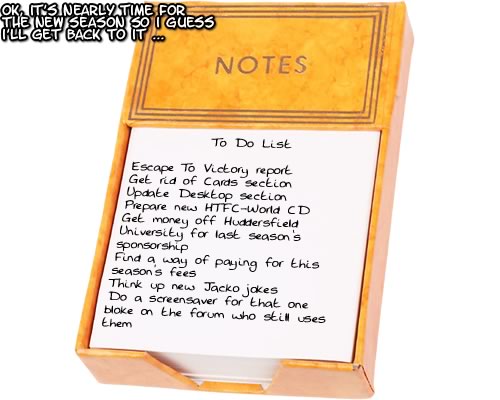 OK, IT'S NEARLY TIME FOR
THE NEW SEASON SO I GUESS
I'LL GET BACK TO IT ...
NOTES
To Do List
Escape To Victory report
Get rid of Cards section
Update Desktop section
Prepare new HTFC-World CD
Get money off Huddersfield
University for last season's
sponsorship
Find a way of paying for this
season's fees
Think up new Jacko jokes
Do a screensaver for that one
bloke on the forum who still uses
them